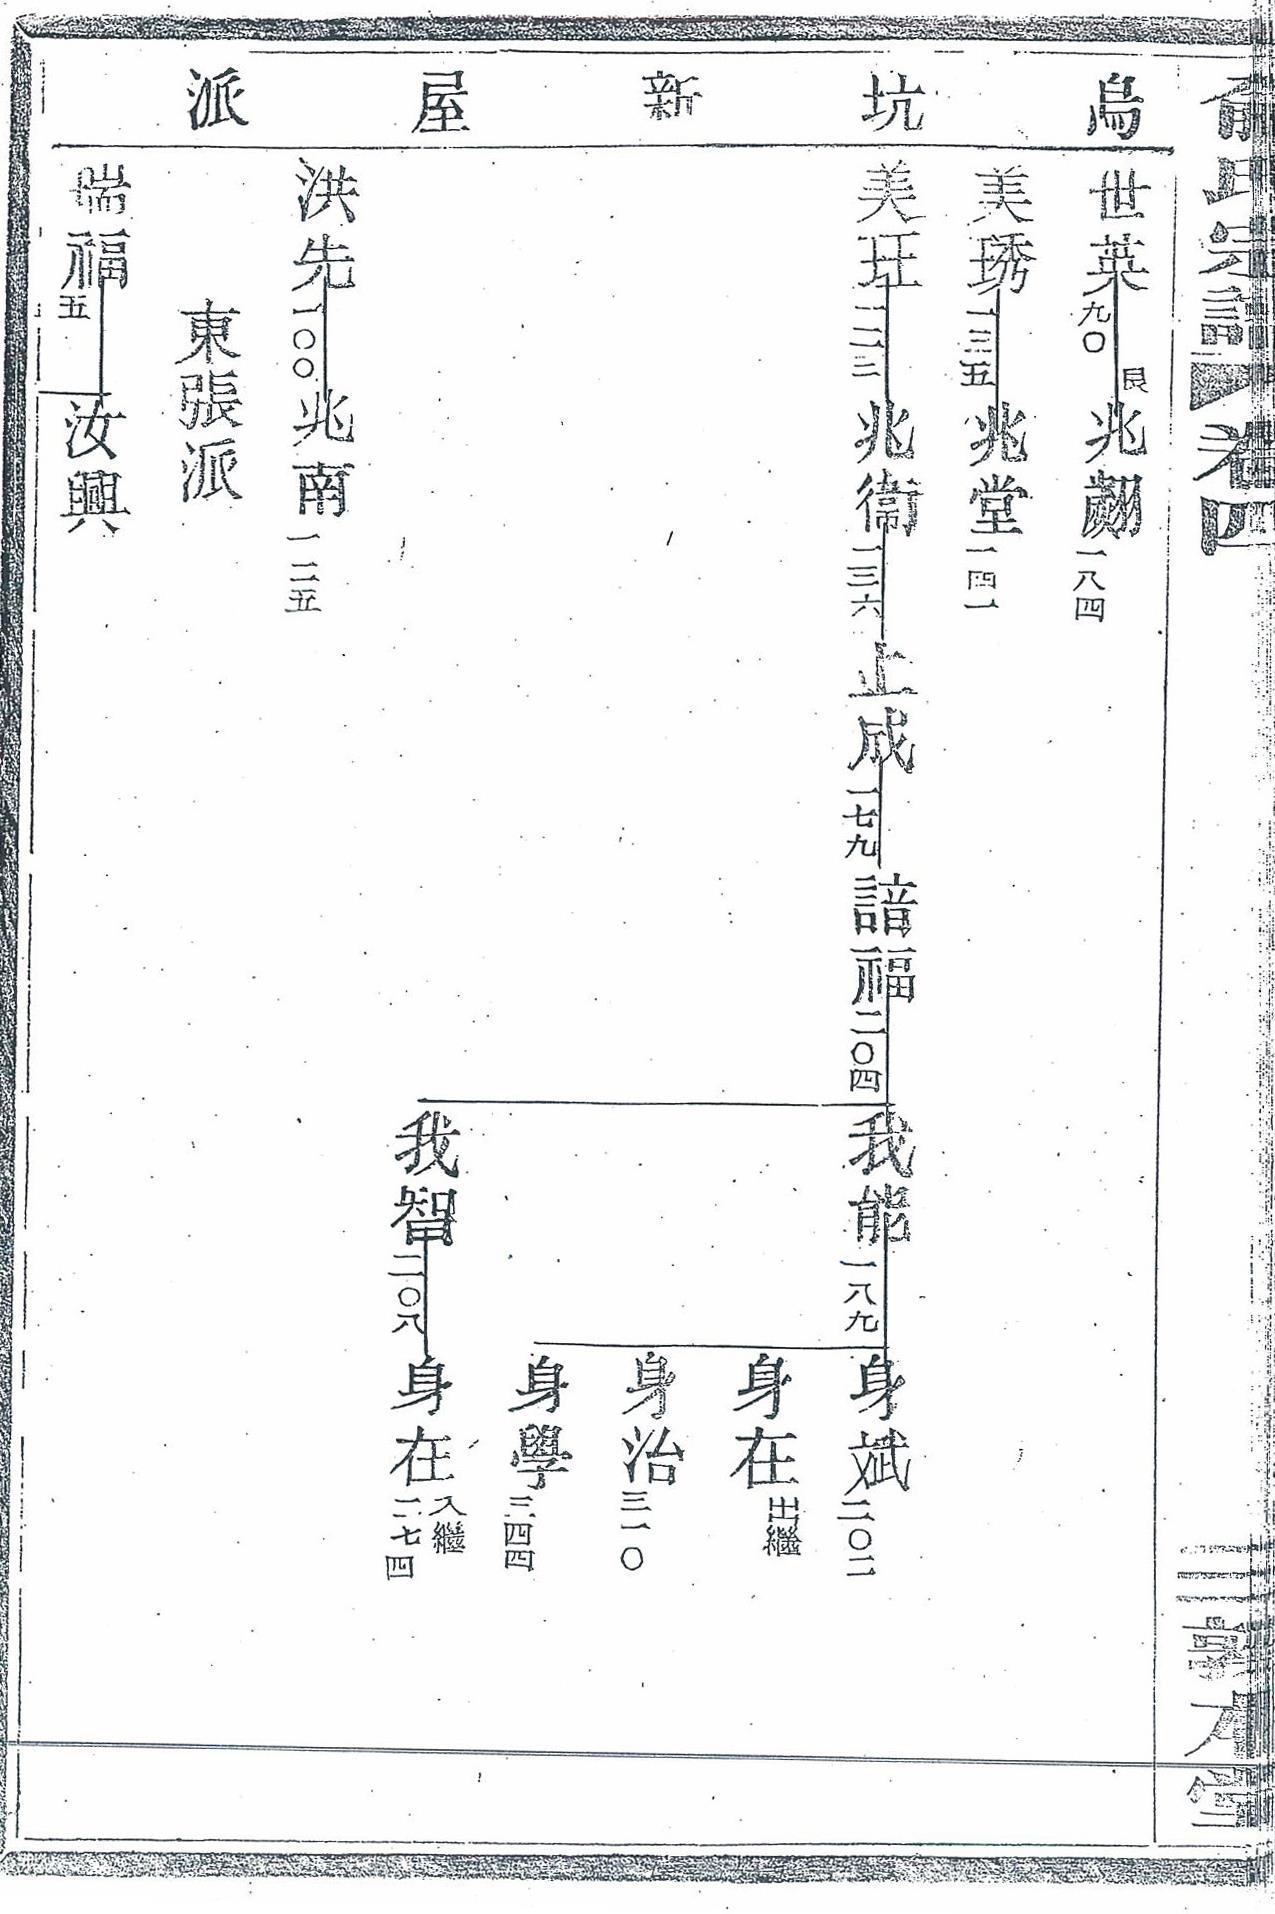 俞氏宗譜 卷四 三 敦本堂
烏坑新屋派
世英 九〇 艮 兆翽 一八四
美琇 一三五 兆堂 一四一
美玨 兆衞 一三六 止成 一七九 諳福 二〇四 我能 一八九 身斌 二〇二
身在 出繼
身治 三一〇
身學 三四四
我智 二〇八 身在 入繼 二七四
洪先 一〇〇 兆南 一二五
東張派
瑞福 五 汝興